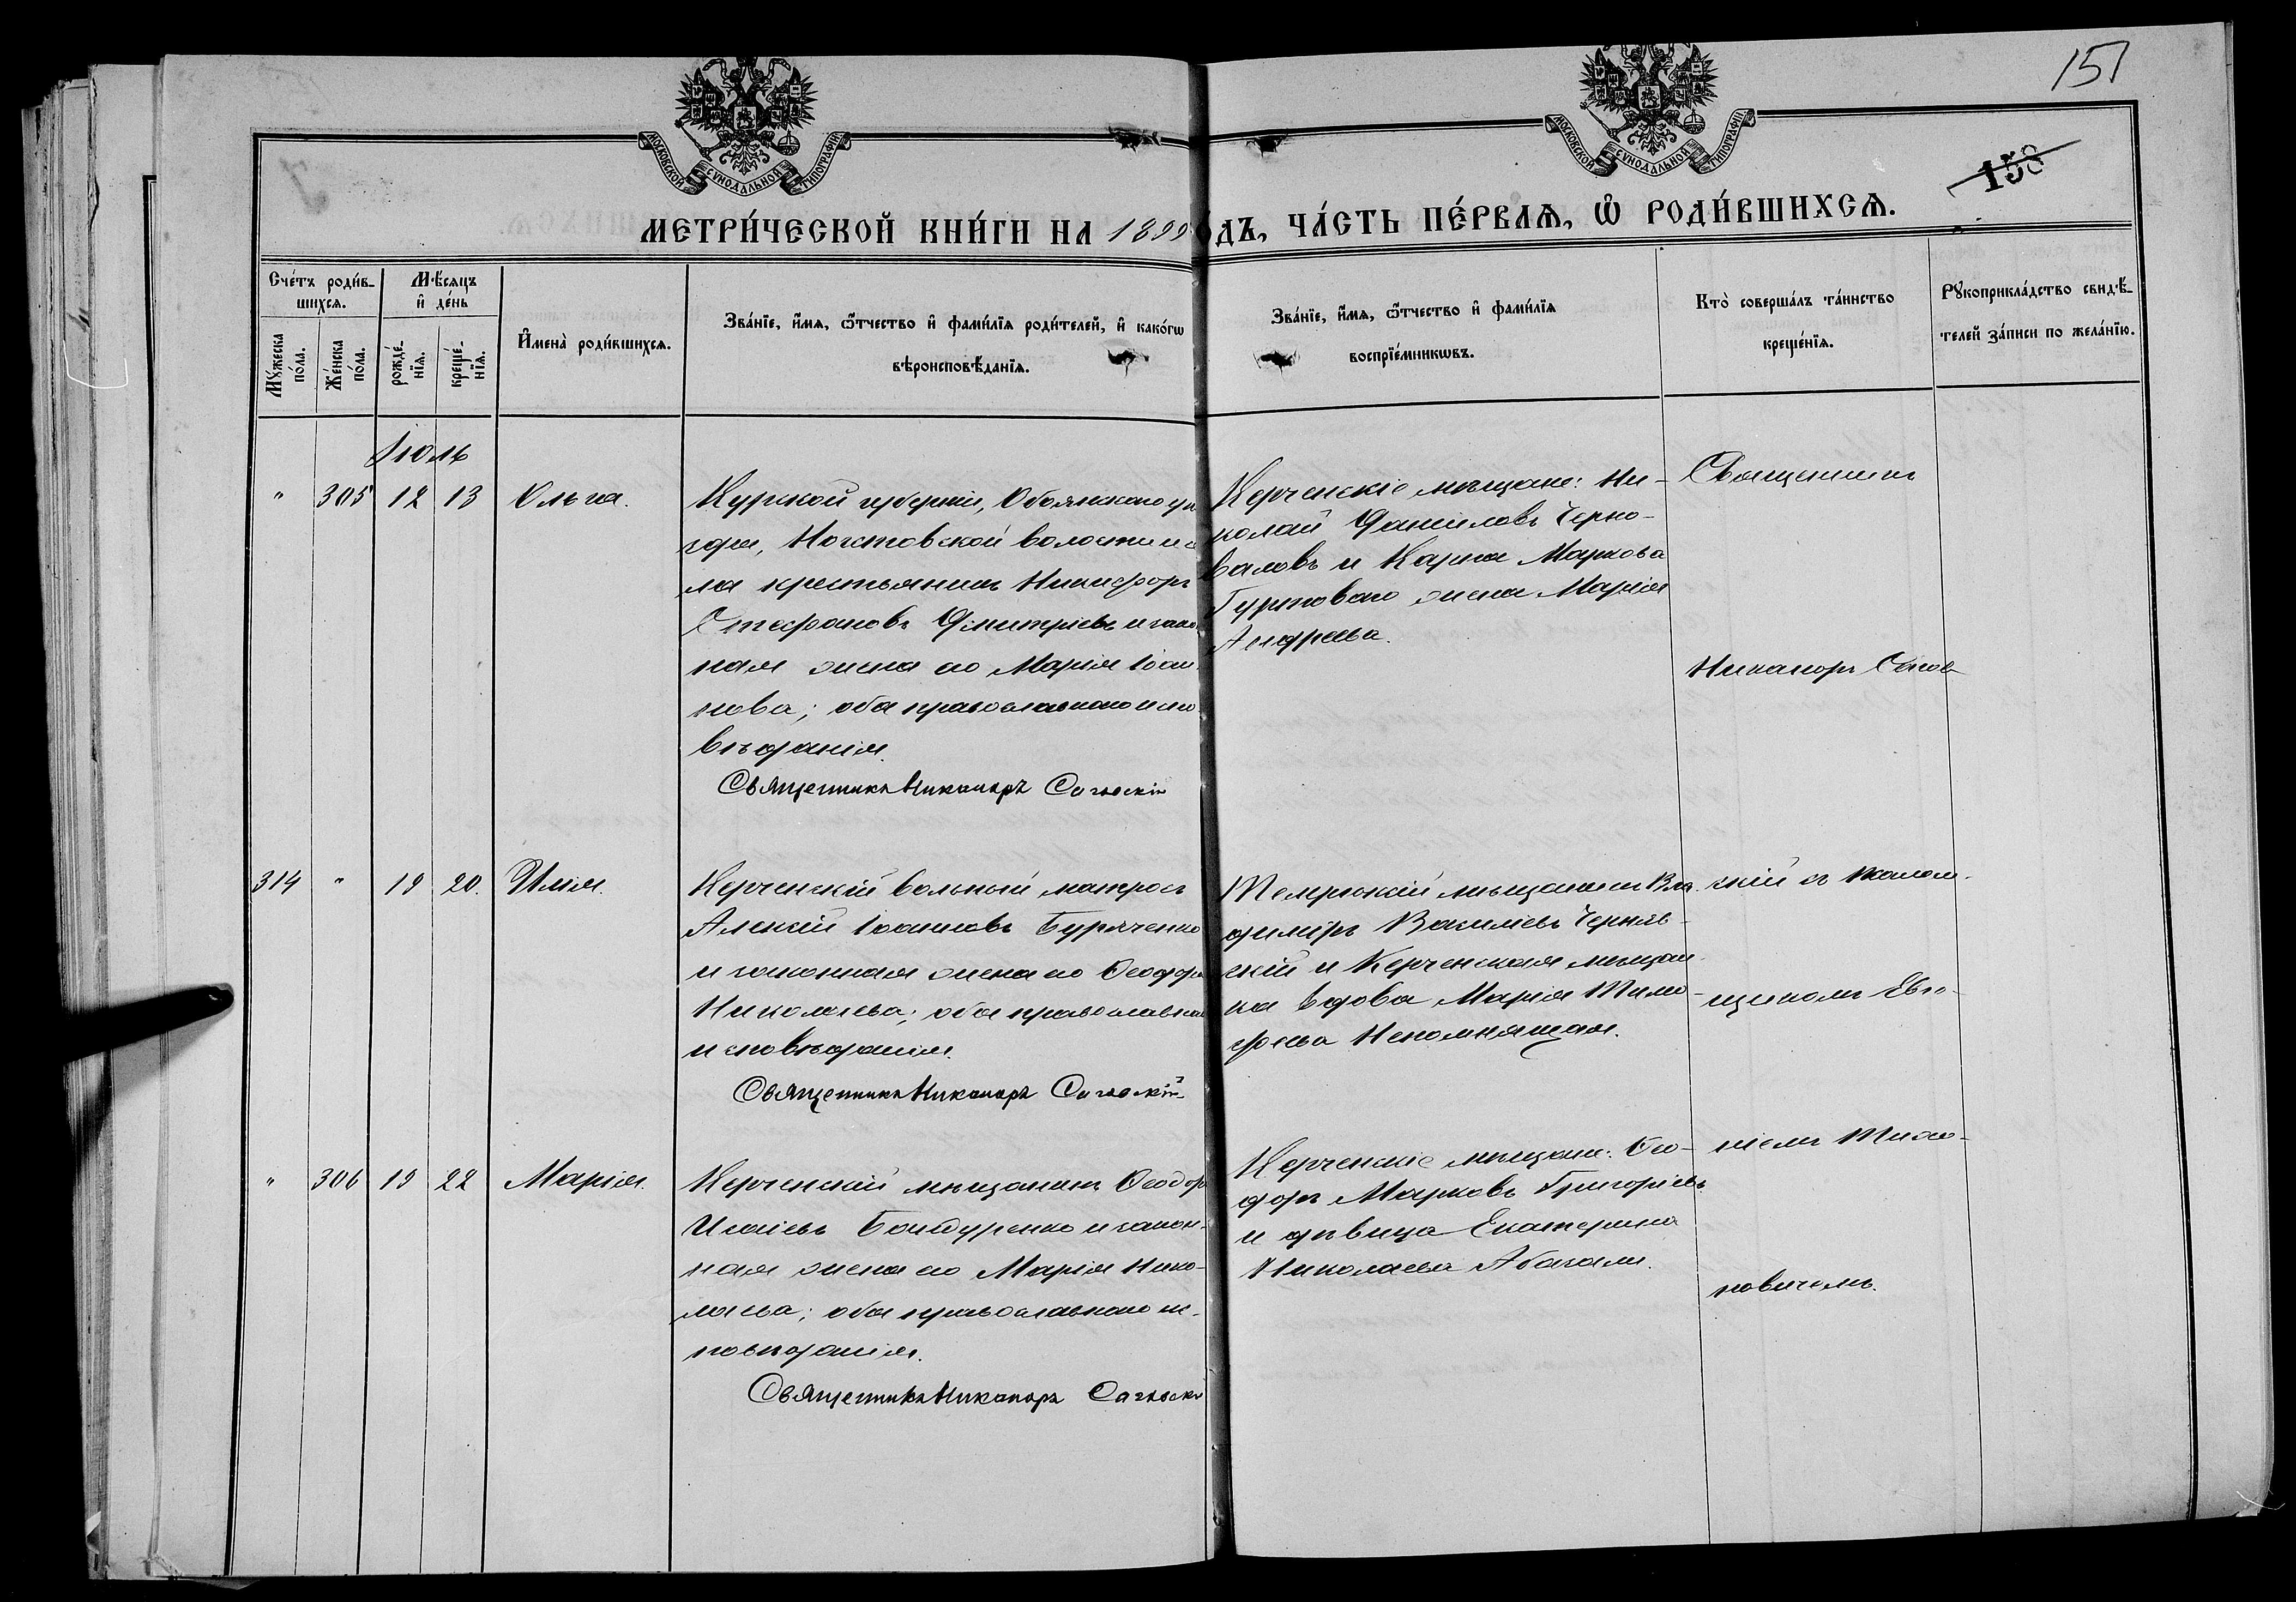 151
158
МОСКОВСКОЙ СѴНОДАЛЬНОЙ ТИПОГРАФІИ
МОСКОВСКОЙ СѴНОДАЛЬНОЙ ТИПОГРАФІИ
МЕТРИ́ЧЕСКОЙ КНИ́ГИ НА 1899
ОДЪ, ЧА́СТЬ ПЕ́РВАѦ, Ѡ РОДИ́ВШИХСѦ.
Сче́тъ роди́в-
шихсѧ.
Мꙋ́жеска по́ла.
Же́нска по́ла.
Мѣ́сѧцъ
и҆ де́нь
рожде́-
нїѧ.
креще́-
нїѧ.
И҆мена̀ роди́вшихсѧ.
Зва́нїе, и҆́мѧ, ѻ҆́тчество и҆ фами́лїѧ роди́телей, и҆ како́гѡ
вѣроисповѣ́данїѧ.
Зва́нїе, и҆́мѧ, ѻ҆́тчество и҆ фами́лїѧ
воспрїе́мникѡвъ.
Кто̀ соверша́лъ та́инство
креще́нїѧ.
Рꙋкоприкла́дство свидѣ́-
телей за́писи по жела́нїю.
Іюль
" 305 12 13 Ольга.
Курской губерніи, Обоянскаго уѣ
зда, волости и с
ла крестьянинъ Никифоръ
Стефановъ Дмитріевъ и закон
ная жена его Марія Іоан
нова; оба православнаго испо
вѣданія.
Священникъ Никаноръ Саговскій
Керченскіе мѣщане: Ни-
колай Даніиловъ Черно-
валовъ и Карпа Маркова
Гуртоваго жена Марія
Андреева.
Священникъ
Никаноръ Сагов
314 " 19 20. Илія.
Керченскій вольный матросъ
Алексій Іоанновъ Буряченко
и законная жена его Ѳеодора
Николаева; оба православнаго
исповѣданія.
Священникъ Никаноръ Саговскій
Темрюкскій мѣщанинъ Вла-
диміръ Василіевъ Черняв-
скій и Керченская мѣщан-
ка вдова Марія Тимо-
феева Непомнящая.
скій съ псалом-
щикомъ Евг-
" 306 19 22 Марія.
Керченскій мѣщанинъ Ѳеодоръ
Исаіевъ Бондуренко и закон-
ная жена его Марія Нико-
лаева; оба православнаго ис-
повѣданія.
Священникъ Никаноръ Саговскі
Керченскіе мѣщане: Ѳео-
доръ Марковъ Григоріевъ
и дѣвица Екатерина
Николаева
ніемъ
новичемъ.